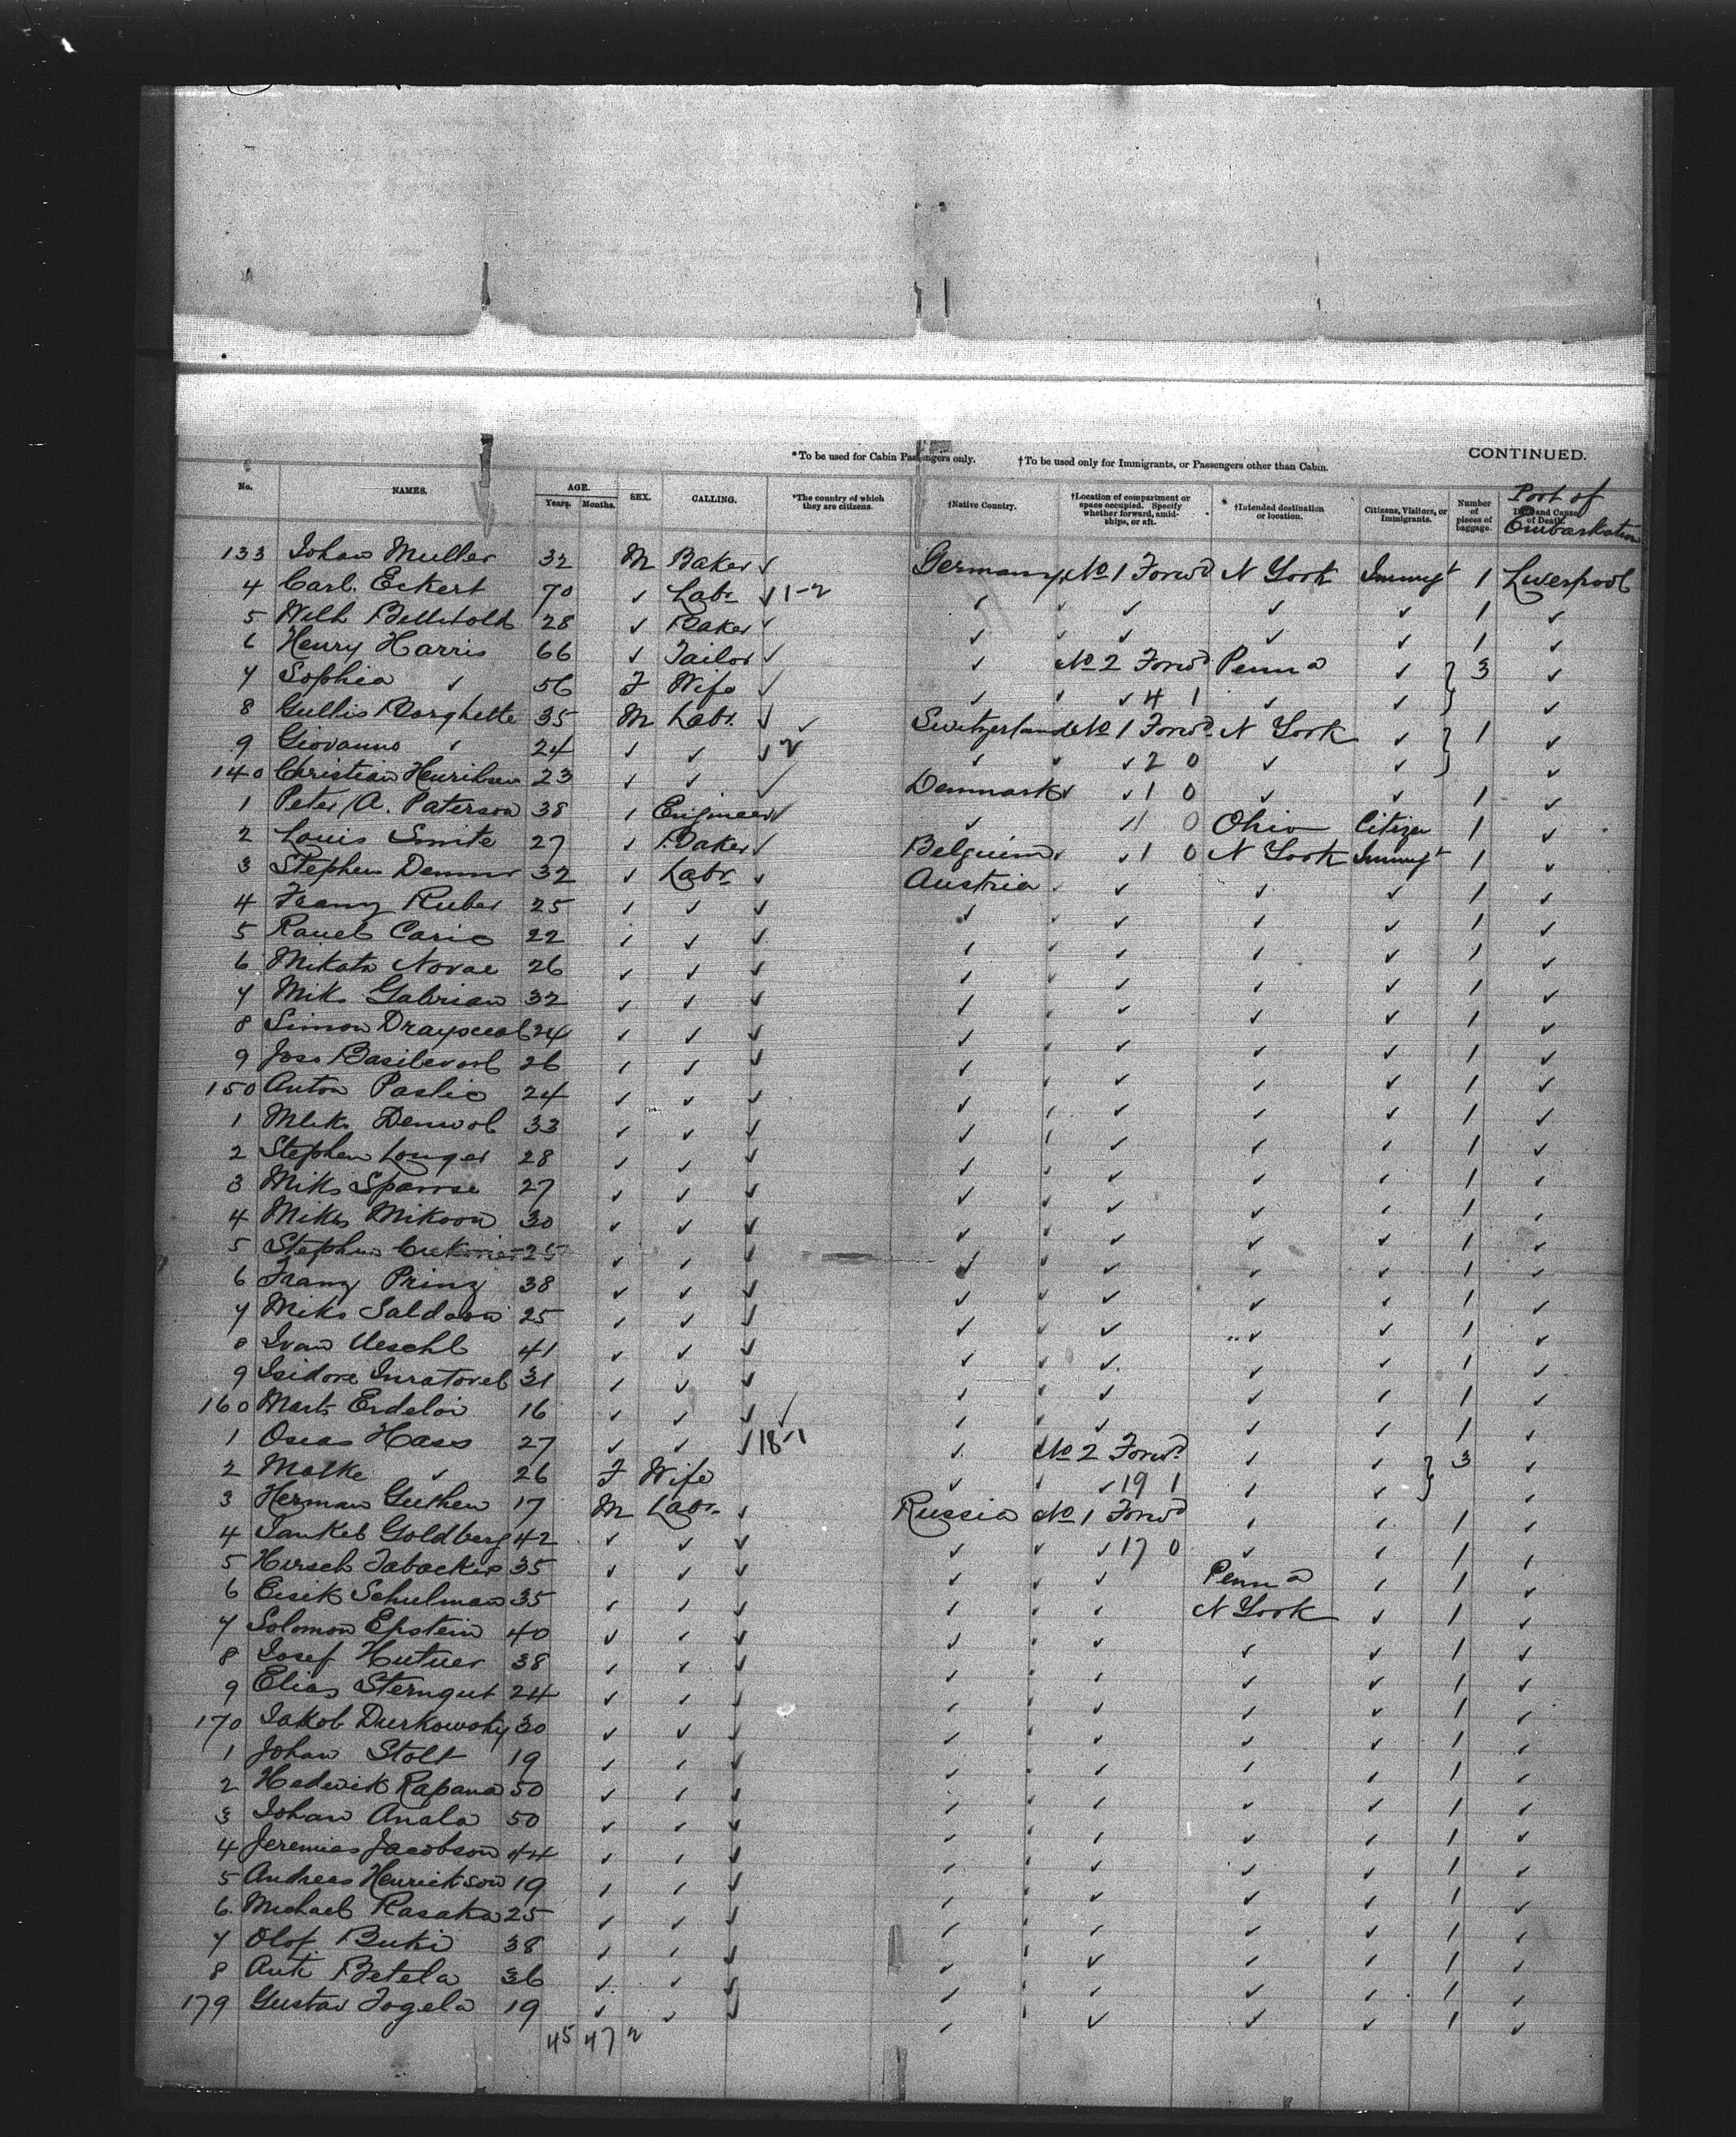 CONTINUED.
*To be used for Cabin Passengers only. †To be used only for Immigrants, or Passengers other than Cabin.
No. NAMES. AGE. Years. Months. SEX. CALLING. *The country of which they are citizens. †Native Country. †Location of compartment or space occupied. Specify whether forward, amidships, or aft. *†Intended destination or location. Citizens, Visitors, or Immigrants. Number of pieces of baggage. Date and Cause of Death. Port of Embarkation
133 Johan Muller 32 M Baker ✓ Germany No 1 Forwd N York Immigt 1 Liverpool
4 Carl. Eckert 70 ✓ Labr ✓ 1-2 ✓ ✓ ✓ ✓ ✓ 1 ✓
5 Wilh 28 ✓ Baker ✓ ✓ ✓ ✓ ✓ ✓ 1 ✓
6 Henry Harris 66 ✓ Tailor ✓ ✓ No 2 Forwd Penna ✓ } 3 ✓
7 Sophia ✓ 56 F Wife ✓ ✓ ✓ ✓ 4 1 ✓ ✓ ✓
8 Gullis Borghette 35 M Labr. ✓ ✓ Switzerland No 1 Forwd N York ✓ } 1 ✓
9 Giovanno ✓ 24 ✓ ✓ ✓ 2 ✓ ✓ ✓ 2 0 ✓ ✓ ✓
140 Christian Henriksen 23 ✓ ✓ ✓ Denmark ✓ ✓ 1 0 ✓ ✓ 1 ✓
1 Peter A. Paterson 38 ✓ Engineer ✓ ✓ ✓ 1 0 Ohio Citizen 1 ✓
2 Louis Smite 27 ✓ Baker ✓ Belguim ✓ ✓ 1 0 N York Immigt 1 ✓
3 Stephen 32 ✓ Labr ✓ Austria ✓ ✓ ✓ ✓ 1 ✓
4 Franz Ruber 25 ✓ ✓ ✓ ✓ ✓ ✓ ✓ ✓ 1 ✓
5 Caric 22 ✓ ✓ ✓ ✓ ✓ ✓ ✓ ✓ 1 ✓
6 Mikata Novae 26 ✓ ✓ ✓ ✓ ✓ ✓ ✓ ✓ 1 ✓
7 Miks Gabrian 32 ✓ ✓ ✓ ✓ ✓ ✓ ✓ ✓ 1 ✓
8 Simon 24 ✓ ✓ ✓ ✓ ✓ ✓ ✓ ✓ 1 ✓
9 Joso 26 ✓ ✓ ✓ ✓ ✓ ✓ ✓ ✓ 1 ✓
150 Anton Paslic 24 ✓ ✓ ✓ ✓ ✓ ✓ ✓ ✓ 1 ✓
1 33 ✓ ✓ ✓ ✓ ✓ ✓ ✓ ✓ 1 ✓
2 Stephen Longer 28 ✓ ✓ ✓ ✓ ✓ ✓ ✓ ✓ 1 ✓
3 Miks 27 ✓ ✓ ✓ ✓ ✓ ✓ ✓ ✓ 1 ✓
4 Mikes 30 ✓ ✓ ✓ ✓ ✓ ✓ ✓ ✓ 1 ✓
5 Stephen 25 ✓ ✓ ✓ ✓ ✓ ✓ ✓ ✓ 1 ✓
6 Franz Prinz 38 ✓ ✓ ✓ ✓ ✓ ✓ ✓ ✓ 1 ✓
7 Miks 25 ✓ ✓ ✓ ✓ ✓ ✓ ✓ ✓ 1 ✓
8 Ivan Ueschl 41 ✓ ✓ ✓ ✓ ✓ ✓ ✓ ✓ 1 ✓
9 Isidore 31 ✓ ✓ ✓ ✓ ✓ ✓ ✓ ✓ 1 ✓
160 Erdeloi 16 ✓ ✓ ✓ ✓ ✓ ✓ ✓ ✓ 1 ✓
1 Oseas Hass 27 ✓ ✓ ✓ 18-1 ✓ No 2 Forwd ✓ ✓ } 3 ✓
2 Malke ✓ 26 F Wife ✓ ✓ ✓ 19 1 ✓ ✓ ✓
3 Herman Guthen 17 M Labr. ✓ Russia No 1 Forwd ✓ ✓ 1 ✓
4 Jankel Goldberg 42 ✓ ✓ ✓ ✓ ✓ ✓ 17 0 ✓ ✓ 1 ✓
5 Hirsch 35 ✓ ✓ ✓ ✓ ✓ ✓ Penna ✓ 1 ✓
6 Eisik Schulman 35 ✓ ✓ ✓ ✓ ✓ ✓ N York ✓ 1 ✓
7 Solomon Epstein 40 ✓ ✓ ✓ ✓ ✓ ✓ ✓ ✓ 1 ✓
8 Josef Hutner 38 ✓ ✓ ✓ ✓ ✓ ✓ ✓ ✓ 1 ✓
9 Elias Sterngut 24 ✓ ✓ ✓ ✓ ✓ ✓ ✓ ✓ 1 ✓
170 Jakob Durkowsky 30 ✓ ✓ ✓ ✓ ✓ ✓ ✓ ✓ 1 ✓
1 Johan Stolt 19 ✓ ✓ ✓ ✓ ✓ ✓ ✓ ✓ 1 ✓
2 Hedwik Rapana 50 ✓ ✓ ✓ ✓ ✓ ✓ ✓ ✓ 1 ✓
3 Johan Anala 50 ✓ ✓ ✓ ✓ ✓ ✓ ✓ ✓ 1 ✓
4 Jeremias Jacobson 44 ✓ ✓ ✓ ✓ ✓ ✓ ✓ ✓ 1 ✓
5 Andreas Henrickson 19 ✓ ✓ ✓ ✓ ✓ ✓ ✓ ✓ 1 ✓
6 Michael Rasaka 25 ✓ ✓ ✓ ✓ ✓ ✓ ✓ ✓ 1 ✓
7 Olof Buki 38 ✓ ✓ ✓ ✓ ✓ ✓ ✓ ✓ 1 ✓
8 Anti Betela 36 ✓ ✓ ✓ ✓ ✓ ✓ ✓ ✓ 1 ✓
179 Gustav Fogela 19 ✓ ✓ ✓ ✓ ✓ ✓ ✓ ✓ 1 ✓
45 47 2